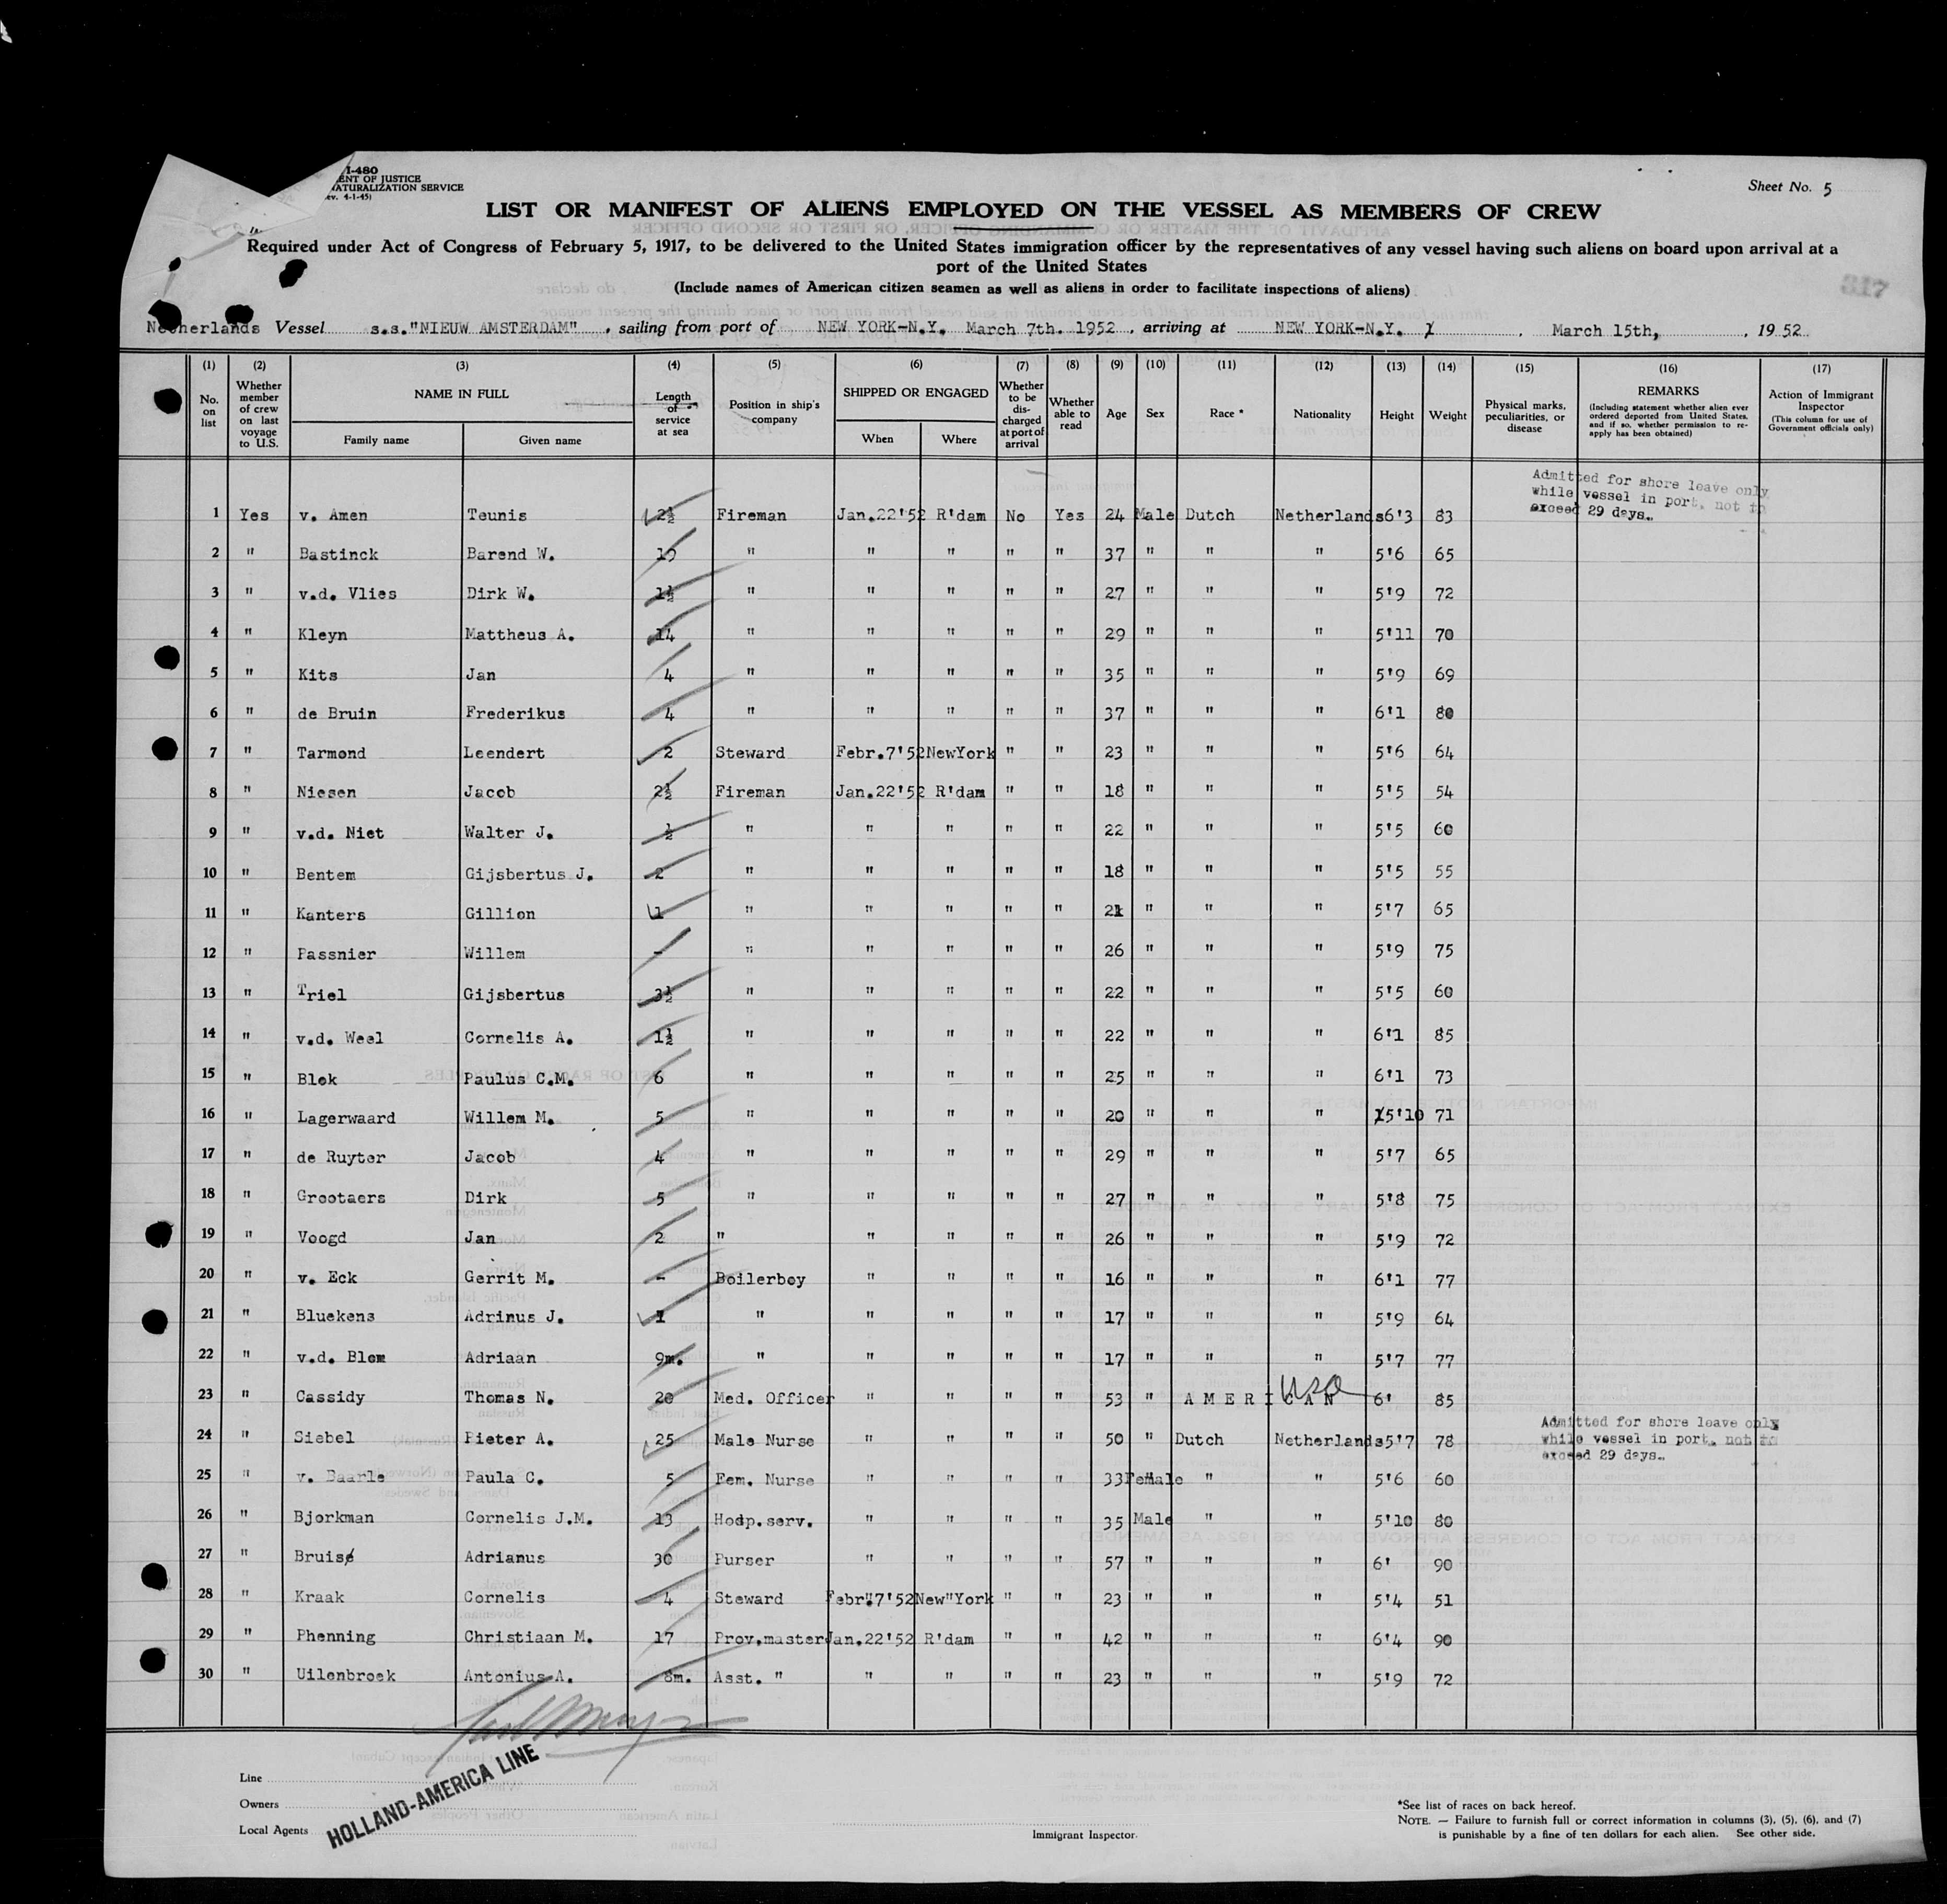 I-480
ENT OF JUSTICE
ATURALIZATION SERVICE
ev. 4-1-45)
Sheet No. 5
LIST OR MANIFEST OF ALIENS EMPLOYED ON THE VESSEL AS MEMBERS OF CREW
Required under Act of Congress of February 5, 1917, to be delivered to the United States immigration officer by the representatives of any vessel having such aliens on board upon arrival at a
port of the United States
(Include names of American citizen seamen as well as aliens in order to facilitate inspections of aliens)
317
Netherlands Vessel s.s."NIEUW AMSTERDAM" , sailing from port of NEW YORK-N.Y. March 7th. 1952 , arriving at NEW YORK-N.Y. , March 15th, , 19 52
(1) No. on list (2) Whether member of crew on last voyage to U.S. (3) NAME IN FULL Family name Given name (4) Length of service at sea (5) Position in ship's company (6) SHIPPED OR ENGAGED When Where (7) Whether to be discharged at port of arrival (8) Whether able to read (9) Age (10) Sex (11) Race * (12) Nationality (13) Height (14) Weight (15) Physical marks, peculiarities, or disease (16) REMARKS (Including statement whether alien ever ordered deported from United States, and if so, whether permission to re-apply has been obtained) (17) Action of Immigrant Inspector (This column for use of Government officials only)
Admitted for shore leave only
while vessel in port, not to
exceed 29 days.
1 Yes v. Amen Teunis 2½ Fireman Jan.22'52 R'dam No Yes 24 Male Dutch Netherlands 6'3 83
2 " Bastinck Barend W. " " " " " 37 " " " 5'6 65
3 " v.d. Vlies Dirk W. 1½ " " " " " 27 " " " 5'9 72
4 " Kleyn Mattheus A. 14 " " " " " 29 " " " 5'11 70
5 " Kits Jan 4 " " " " " 35 " " " 5'9 69
6 " de Bruin Frederikus 4 " " " " " 37 " " " 6'1 80
7 " Tarmond Leendert 2 Steward Febr.7'52 NewYork " " 23 " " " 5'6 64
8 " Niesen Jacob 2½ Fireman Jan.22'52 R'dam " " 18 " " " 5'5 54
9 " v.d. Niet Walter J. ½ " " " " " 22 " " " 5'5 60
10 " Bentem Gijsbertus J. 2 " " " " " 18 " " " 5'5 55
11 " Kanters Gillion 1 " " " " " 21 " " " 5'7 65
12 " Passnier Willem - " " " " " 26 " " " 5'9 75
13 " Triel Gijsbertus 3½ " " " " " 22 " " " 5'5 60
14 " v.d. Weel Cornelis A. 1½ " " " " " 22 " " " 6'1 85
15 " Blok Paulus C.M. 6 " " " " " 25 " " " 6'1 73
16 " Lagerwaard Willem M. 5 " " " " " 20 " " " 5'10 71
17 " de Ruyter Jacob 4 " " " " " 29 " " " 5'7 65
18 " Grootaers Dirk 5 " " " " " 27 " " " 5'8 75
19 " Voogd Jan 2 " " " " " 26 " " " 5'9 72
20 " v. Eck Gerrit M. - Boilerboy " " " " 16 " " " 6'1 77
21 " Bluekens Adrinus J. 1 " " " " " 17 " " " 5'9 64
22 " v.d. Blom Adriaan 9m. " " " " " 17 " " " 5'7 77
23 " Cassidy Thomas N. 20 Med. Officer " " " " 53 " AMERICAN USA 6' 85
Admitted for shore leave only
while vessel in port, not to
exceed 29 days.
24 " Siebel Pieter A. 25 Male Nurse " " " " 50 " Dutch Netherlands 5'7 78
25 " v. Baarle Paula C. 5 Fem. Nurse " " " " 33 Female " " 5'6 60
26 " Bjorkman Cornelis J.M. 13 Hosp.serv. " " " " 35 Male " " 5'10 80
27 " Bruise Adrianus 30 Purser " " " " 57 " " " 6' 90
28 " Kraak Cornelis 4 Steward Febr"7'52 New"York " " 23 " " " 5'4 51
29 " Phenning Christiaan M. 17 Prov.master Jan.22'52 R'dam " " 42 " " " 6'4 90
30 " Uilenbroek Antonius A. 8m. Asst. " " " " " 23 " " " 5'9 72
Line
Owners
Local Agents
HOLLAND-AMERICA LINE
Immigrant Inspector.
*See list of races on back hereof.
NOTE. — Failure to furnish full or correct information in columns (3), (5), (6), and (7)
is punishable by a fine of ten dollars for each alien. See other side.